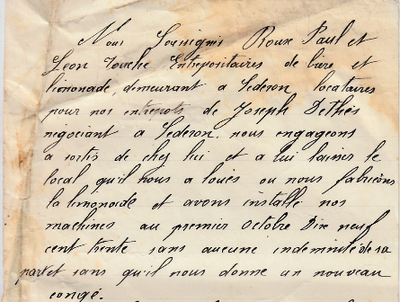 Nous Soussignés Roux Paul et
Leon Touche Entrepositaires de biere et
limonade, demeurant a Sederon locataires
pour nos entrepots de Joseph Dethès
negociant a Sederon. nous engageons
a sortir de chez lui et a lui laisser le
local qu'il nous a loués ou nous fabriquons
la limonade et avons installé nos
machines au premier Octobre Dix neuf
cent trente sans aucune indemnité de sa
part et sans qu'il nous donne un nouveau
congé.